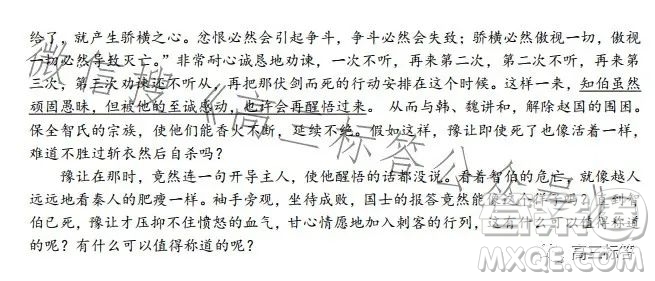 给了，就产生骄横之心。忿恨必然会引起争斗，争斗必然会失败；骄横必然傲视一切，傲视
一切必然导致灭亡。”非常耐心诚恳地劝谏，一次不听，再来第二次，第二次不听，再来第
三次，第三次劝谏还不听从，再把那伏剑而死的行动安排在这个时候。这样一来，知伯虽然
顽固愚昧，但被他的至诚感动，也许会再醒悟过来。 从而与韩、魏讲和，解除赵国的围困。
保全智氏的宗族，使他们能香火不断，延续不绝。假如这样，豫让即使死了也像活着一样，
难道不胜过斩衣然后自杀吗？
豫让在那时，竟然连一句开导主人，使他醒悟的话都没说。看着智伯的危亡，就像越人
远远地看秦人的肥瘦一样。袖手旁观，坐待成败，国士的报答竟然能像这个样子吗？直到智
伯已死，豫让才压抑不住愤怒的血气，甘心情愿地加入刺客的行列，这有什么可以值得称道
的呢？有什么可以值得称道的呢？
微信搜《高三标答公众号》
高三标答
作业帮
MXQE.COM